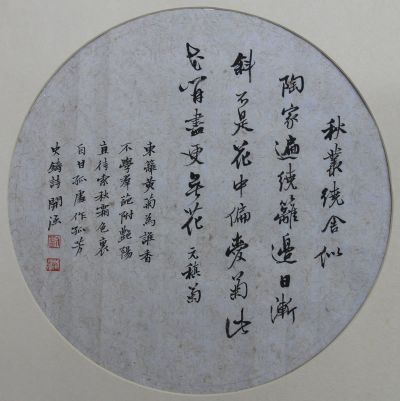 秋叢繞舍似
陶家遍繞籬邊日漸
斜不是花中偏愛菊此
花開盡更無花 元稹菊
東籬黃菊為誰香
不學羣葩附艷陽
直待素秋霜色裏
自甘孤處作孤芳
史鑄詩